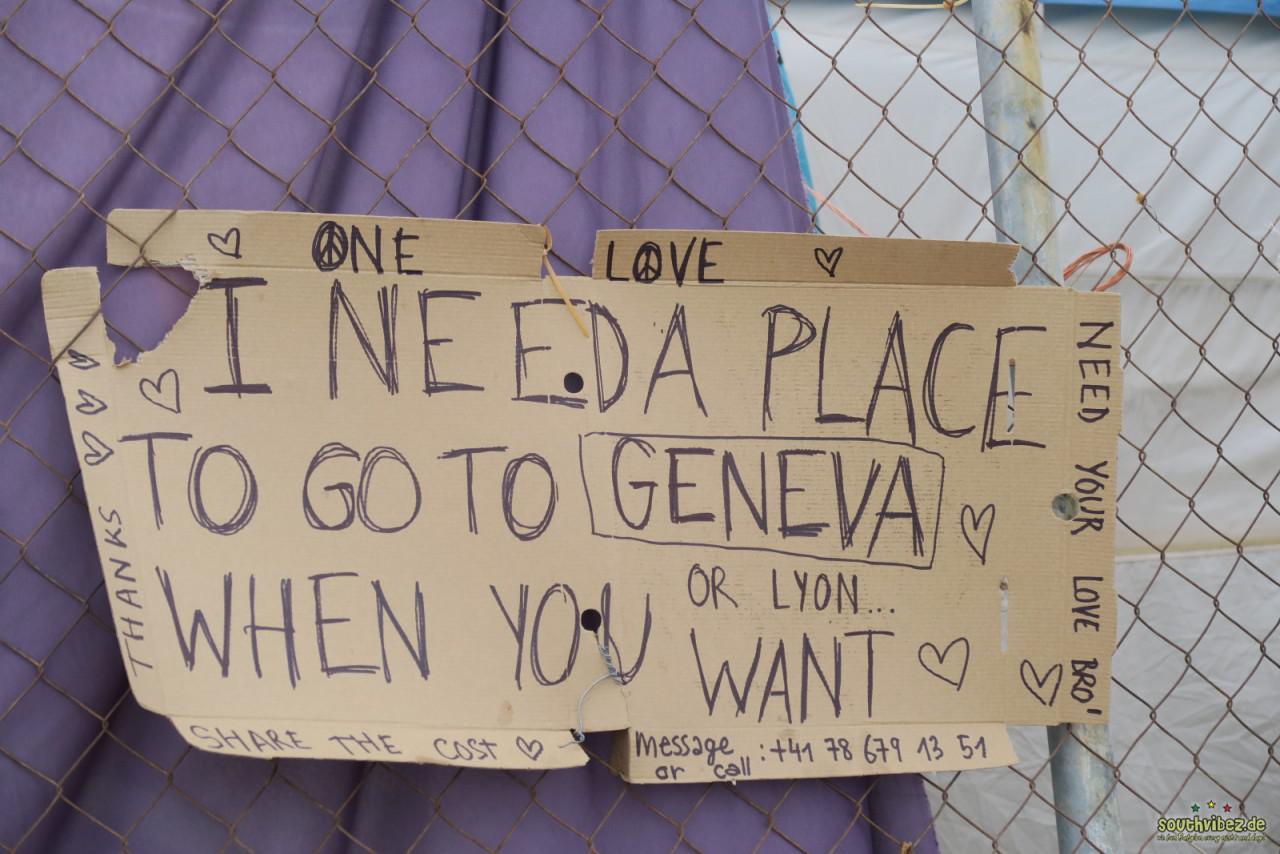 ONE LOVE
I NEED A PLACE
TO GO TO GENEVA
OR LYON...
WHEN YOU WANT
THANKS
NEED YOUR LOVE BRO'
SHARE THE COST
Message or call : +41 78 679 13 51
southvibez.de